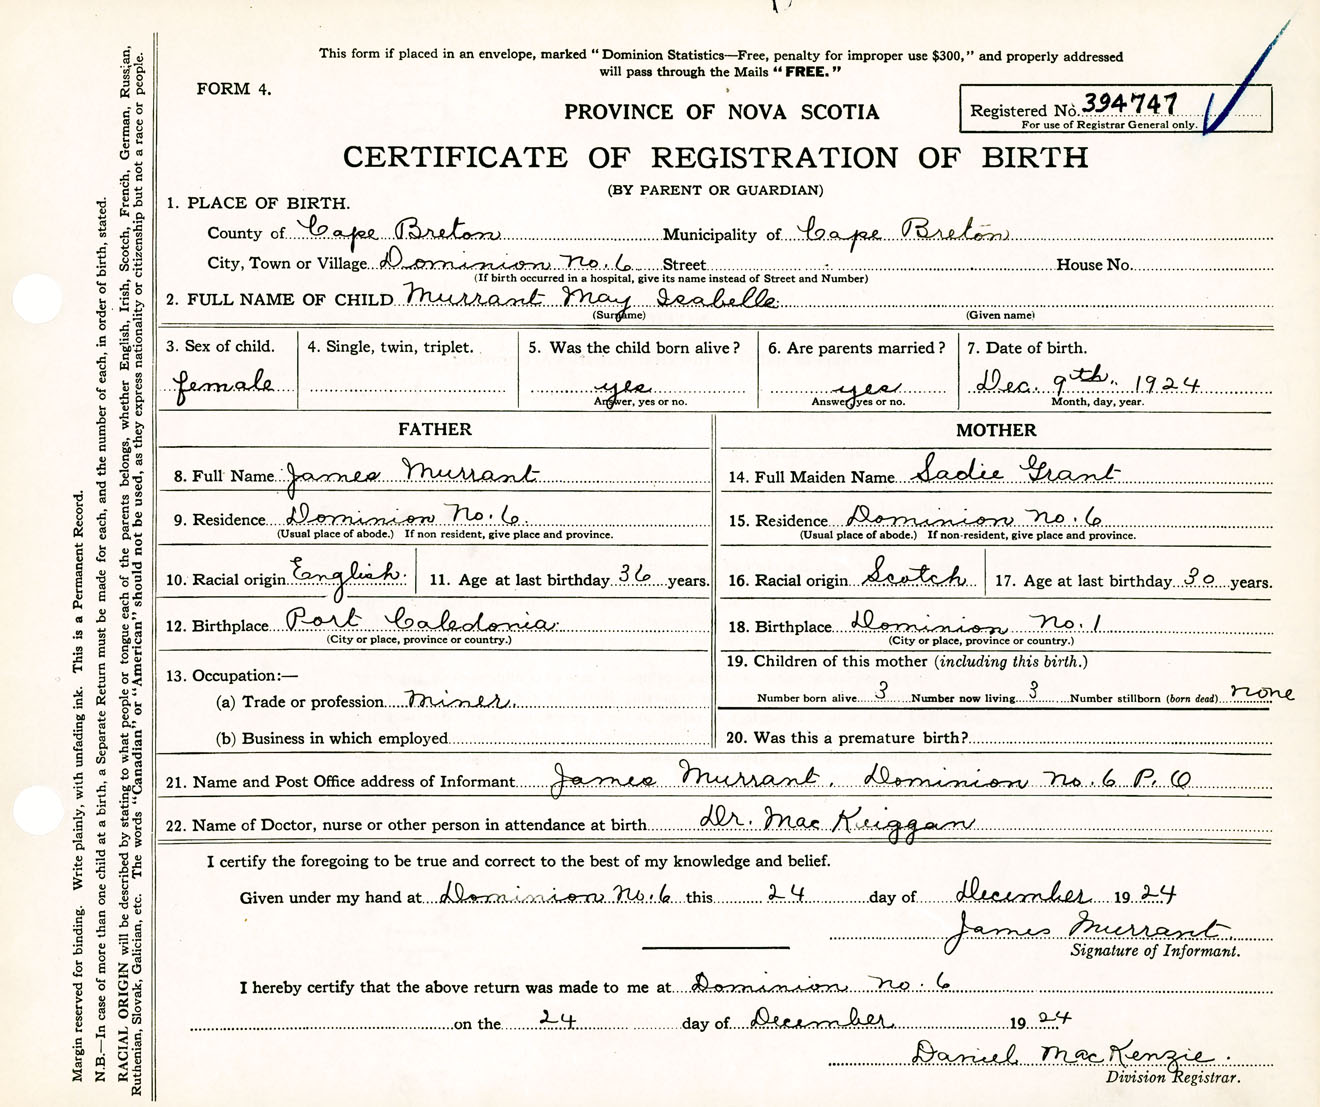 This form if placed in an envelope, marked "Dominion Statistics—Free, penalty for improper use $300," and properly addressed
will pass through the Mails "FREE."
FORM 4.
PROVINCE OF NOVA SCOTIA
Registered No. 394747
For use of Registrar General only.
CERTIFICATE OF REGISTRATION OF BIRTH
(BY PARENT OR GUARDIAN)
1. PLACE OF BIRTH.
County of Cape Breton Municipality of Cape Breton
City, Town or Village Dominion No. 6 Street House No.
(If birth occurred in a hospital, give its name instead of Street and Number)
2. FULL NAME OF CHILD Murrant May Isabelle
(Surname) (Given name)
3. Sex of child. 4. Single, twin, triplet. 5. Was the child born alive? 6. Are parents married? 7. Date of birth.
female yes yes Dec. 9th. 1924
Answer, yes or no. Answer, yes or no. Month, day, year.
FATHER MOTHER
8. Full Name James Murrant 14. Full Maiden Name Sadie Grant
9. Residence Dominion No. 6. 15. Residence Dominion No. 6
(Usual place of abode.) If non resident, give place and province. (Usual place of abode.) If non-resident, give place and province.
10. Racial origin English. 11. Age at last birthday 36 years. 16. Racial origin Scotch 17. Age at last birthday 30 years.
12. Birthplace Port Caledonia. 18. Birthplace Dominion No. 1
(City or place, province or country.) (City or place, province or country.)
13. Occupation:— 19. Children of this mother (including this birth.)
(a) Trade or profession Miner. Number born alive 3 Number now living 3 Number stillborn (born dead) none
(b) Business in which employed 20. Was this a premature birth?
21. Name and Post Office address of Informant James Murrant. Dominion No. 6 P. O
22. Name of Doctor, nurse or other person in attendance at birth Dr. Mac Keiggan
I certify the foregoing to be true and correct to the best of my knowledge and belief.
Given under my hand at Dominion No. 6 this 24 day of December 1924
James Murrant.
Signature of Informant.
I hereby certify that the above return was made to me at Dominion No. 6
on the 24 day of December 1924
Daniel MacKenzie.
Division Registrar.
Margin reserved for binding. Write plainly, with unfading ink. This is a Permanent Record.
N.B.—In case of more than one child at a birth, a Separate Return must be made for each, and the number of each, in order of birth, stated.
RACIAL ORIGIN will be described by stating to what people or tongue each of the parents belongs, whether English, Irish, Scotch, French, German, Russian,
Ruthenian, Slovak, Galician, etc. The words "Canadian" or "American" should not be used, as they express nationality or citizenship but not a race or people.